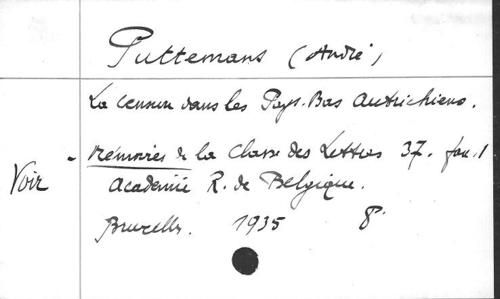 Puttemans (André)
La censure dans les Pays-Bas autrichiens.
Voir - Mémoires de la Classe des Lettres 37. fasc. 1
Académie R. de Belgique.
Bruxelles. 1935 8°